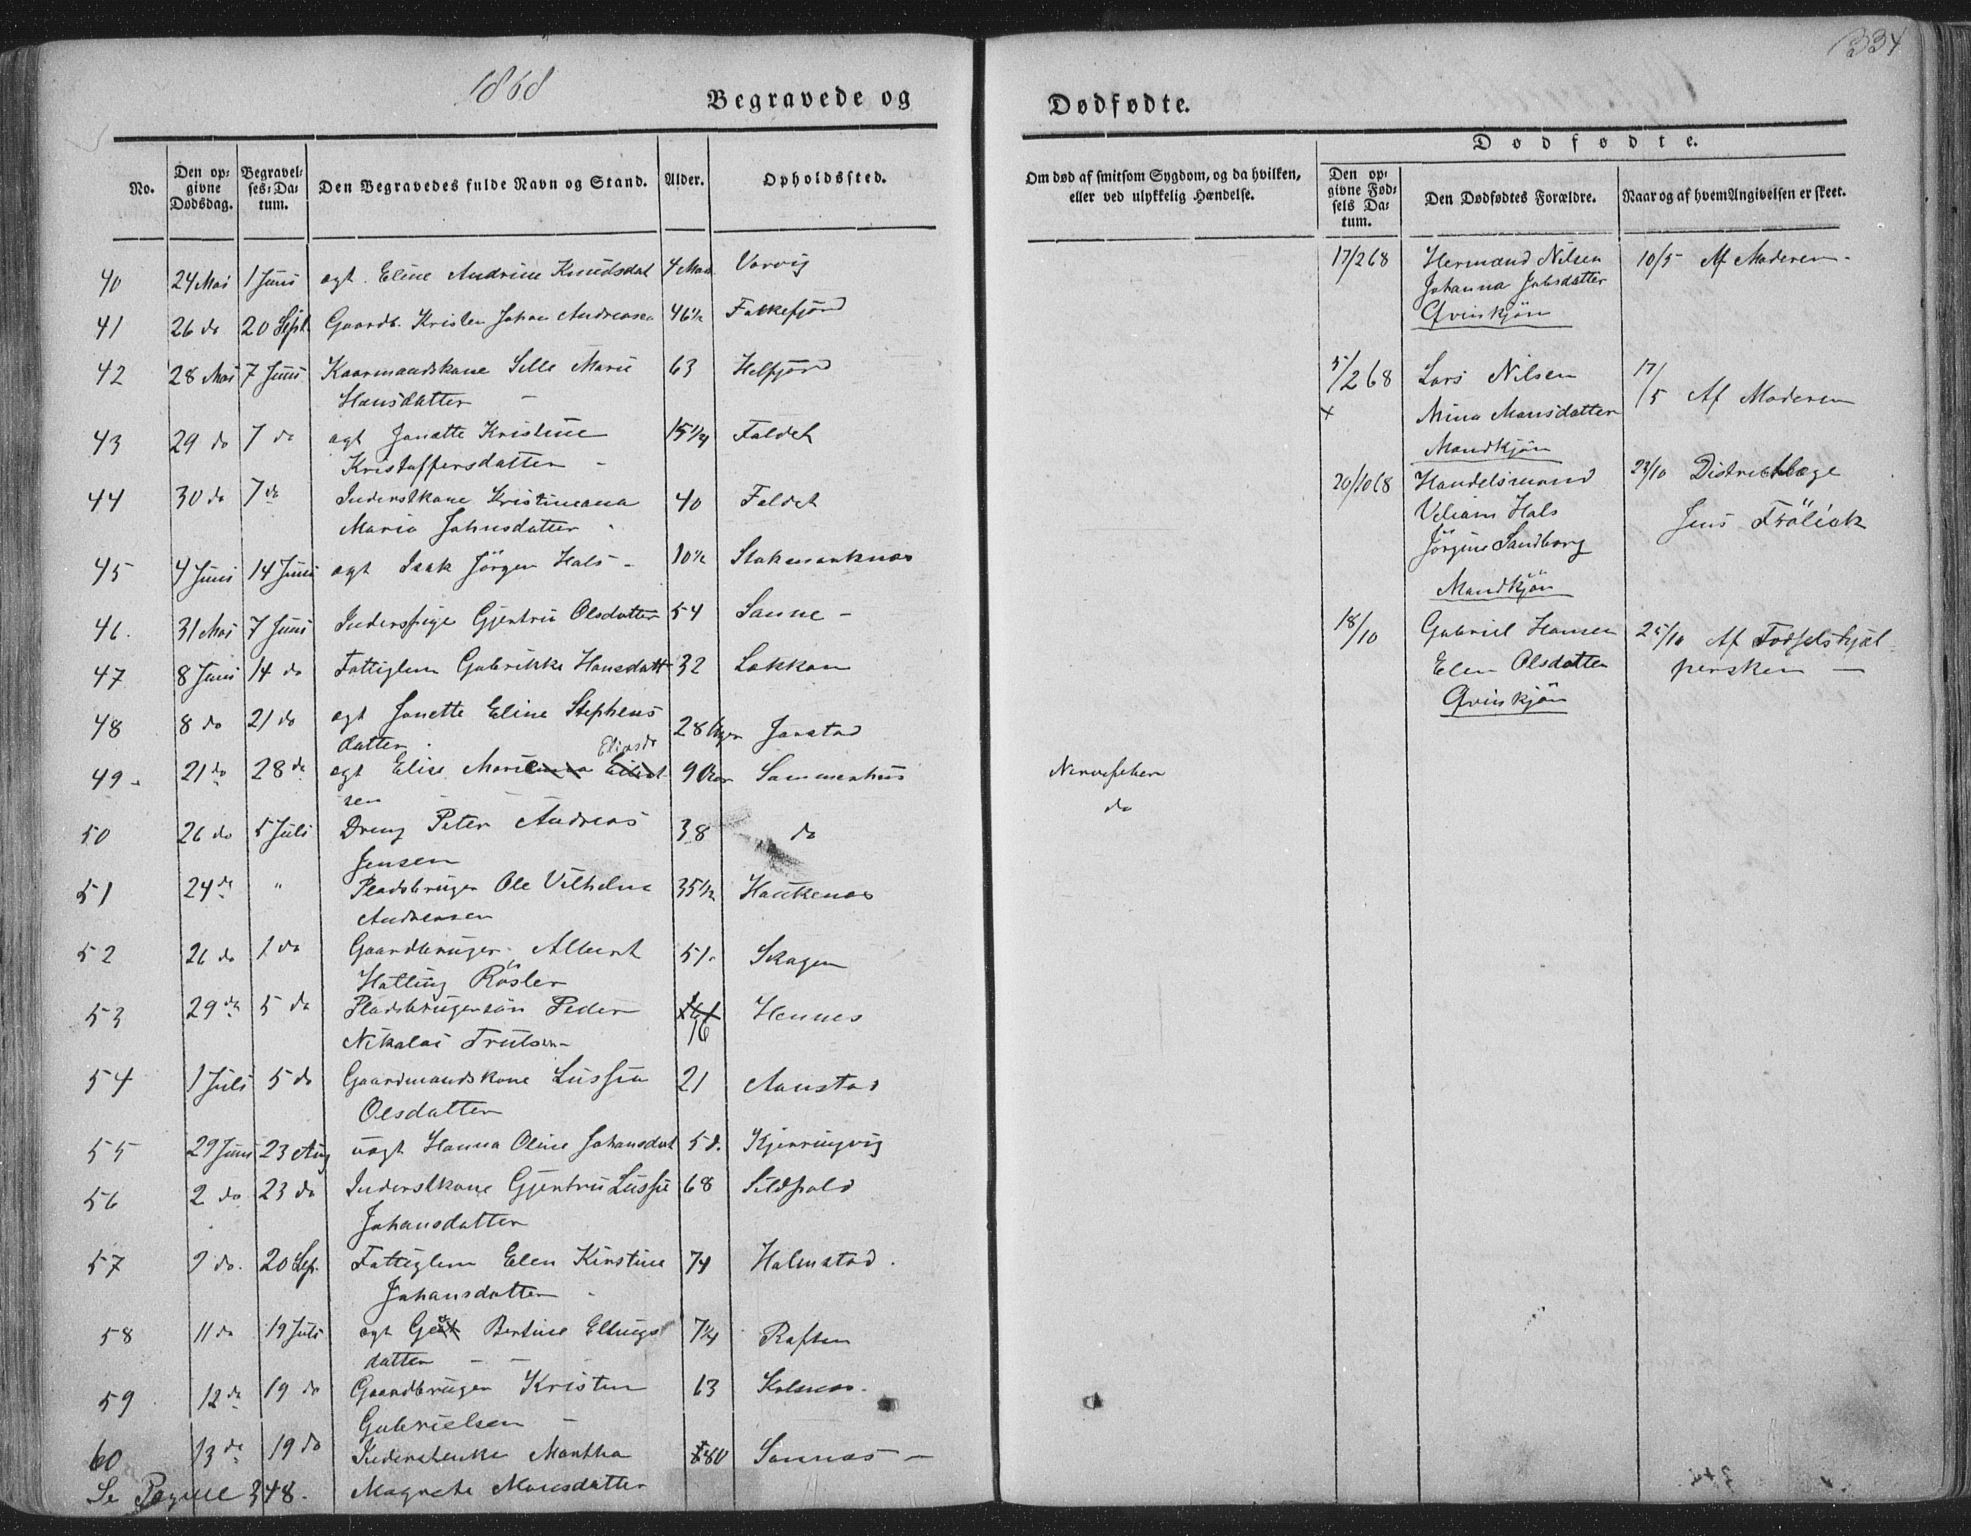 1868
334
Begravede og
Dødfødte.
No.
Den opgivne Dødsdag.
Begravelses-Datum.
Den Begravedes fulde Navn og Stand.
Alder.
Opholdssted.
Om død af smitsom Sygdom, og da hvilken, eller ved ulykkelig Hændelse.
Dødfødte.
Den opgivne Fødsels Datum.
Den Dødfødtes Forældre.
Naar og af hvem Angivelsen er skeet.
40 24 Mai 1 Juni ægt. Eline Andrine Knudsdat 4 Maa Vorvig
41 26 do 20 Sept Gaardb. Kristen Johan Andreasen 46½ Falkefjord
42 28 Mai 7 Juni Kaarmandskone Sille Marie 63 Helfjord
Hansdatter
43 29 do 7 do ægt Janette Kristine 15¼ Faldet
Kristoffersdatter
44 30 do 7 do Inderstkone Kristineana 40 Faldet
Maria Johnsdatter
45 4 Juni 14 Juni ægt Isak Jörgen Hals 10½ Stokmarknæs
46. 31 Mai 7 Juni Inderspige Gjertrü Olsdatter 54 Sanne
47 8 Juni 14 do Fattiglem Gabrikke Hansdatt 32 Lakkan
48 8 do 21 do ægt Janette Eline Stephens 28 Uger Janstad
datter
49 21 do 28 do ægt Elise Mari Eliasd 9 Aar Sommerhus
sen
50 26 do 5 Juli Dreng Peter Andreas 38 do
Jensen
51 24 do " Pladsbruger Ole Vilhelm 35½ Haukenæs
Andreasen
52 26 do 1 do Gaardbruger Albert 51 Skagen
Hatling Rösler
53 29 do 5 do Pladsbrugersön Peder 16 Hennes
Nikolai Trulsen
54 1 Juli 5 do Gaardmandskone Lussia 21 Aanstad
Olsdatter
55 29 Juni 23 Aug uægt Hanna Oline Johansdat 5 d. Kjerringvig
56 2 do 23 do Inderstkone Gjertrü Lussie 68 Sildpold
Johansdatter
57 9 do 20 Sep. Fattiglem Elen Kirstine 74 Halmstad
Johansdatter
58 11 do 19 Juli ægt Bertine Ellings 7¼ Raften
datter
59 12 do 19 do Gaardbruger Kristen 63
Gabrielsen
60 13 do 19 do Inderstenke Martha 80 Sannæs
Magrete Monsdatter
Se Pagine 348.
Nervefeber
do
17/2 68 Hermand Nilsen 10/5 Af Moderen
Johanna Jakobsdatter
Qvinkjön
5/2 68 Lars Nilsen 17/5 Af Moderen
x Mina Monsdatter
Mandkjön
20/10 68 Handelsmand 23/10 Districtslæge
Viliam Hals Jens Frölich
Jörgine Sandborg
Mandkjön
18/10 Gabriel Hansen 25/10 Af Fodselshjæl
Elen Olsdatter persken
Qvinkjön